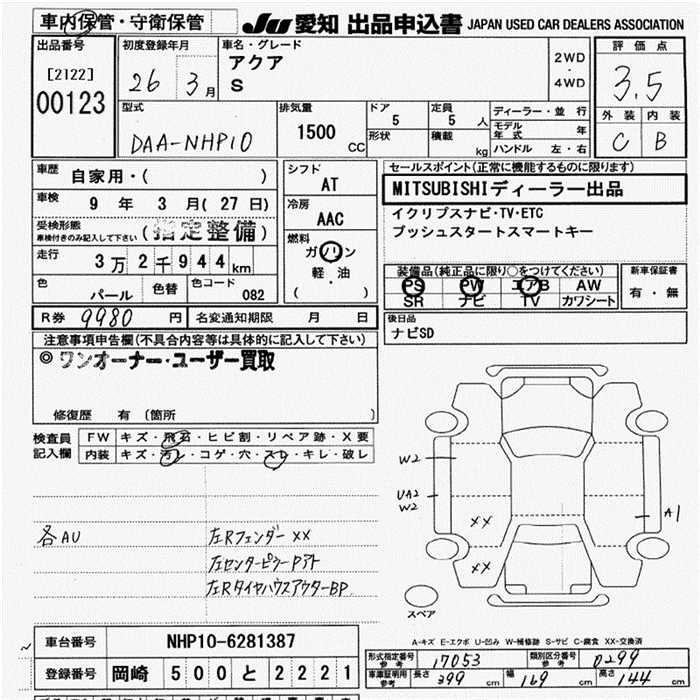 車内保管・守衛保管 JU 愛知 出品申込書 JAPAN USED CAR DEALERS ASSOCIATION
出品番号 初度登録年月 車名・グレード 評価点
[2122] 26 3月 アクア 2WD
00123 S 4WD 3.5
型式 排気量 ドア 定員 ディーラー・並行 外装 内装
DAA-NHP10 1500 CC 5 5 人 モデル年式 年 C B
形状 積載 kg ハンドル 左・右
車歴 自家用・( ) シフト AT セールスポイント(正常に機能するものに限ります)
車検 9 年 3 月(27 日) 冷房 AAC MITSUBISHIディーラー出品
受検形態 (指定整備) イクリプスナビ・TV・ETC
車検付きのみ記入して下さい 燃料 プッシュスタートスマートキー
走行 3万2千944km ガソリン
軽・油
( )
装備品(純正品に限り○をつけてください) 新車保証書
PS PW エアB AW 有・無
SR ナビ TV カワシート
色 パール 色替 色コード 082
R券 9980 円 名変通知期限 月 日 後日品
ナビSD
注意事項申告欄(不具合内容等は具体的に記入して下さい)
◎ワンオーナー・ユーザー買取
修復歴 有 (箇所
検査員記入欄 FW キズ・飛石・ヒビ割・リペア跡・X要
内装 キズ・汚レ・コゲ・穴・スレ・キレ・破レ
W2
UA2
W2
A1
XX
XX
各AU 左Rフェンダー XX
左センターピラーPアト
左RタイヤハウスアウターBP
スペア
A-キズ E-エクボ U-凹み W-補修跡 S-サビ C-腐食 XX-交換済
車台番号 NHP10-6281387
登録番号 岡崎 500 と 2221
形式指定番号 参考 17053 類別区分番号 参考 0299
車庫証明用 参考 長さ 399 cm 幅 169 cm 高さ 144 cm